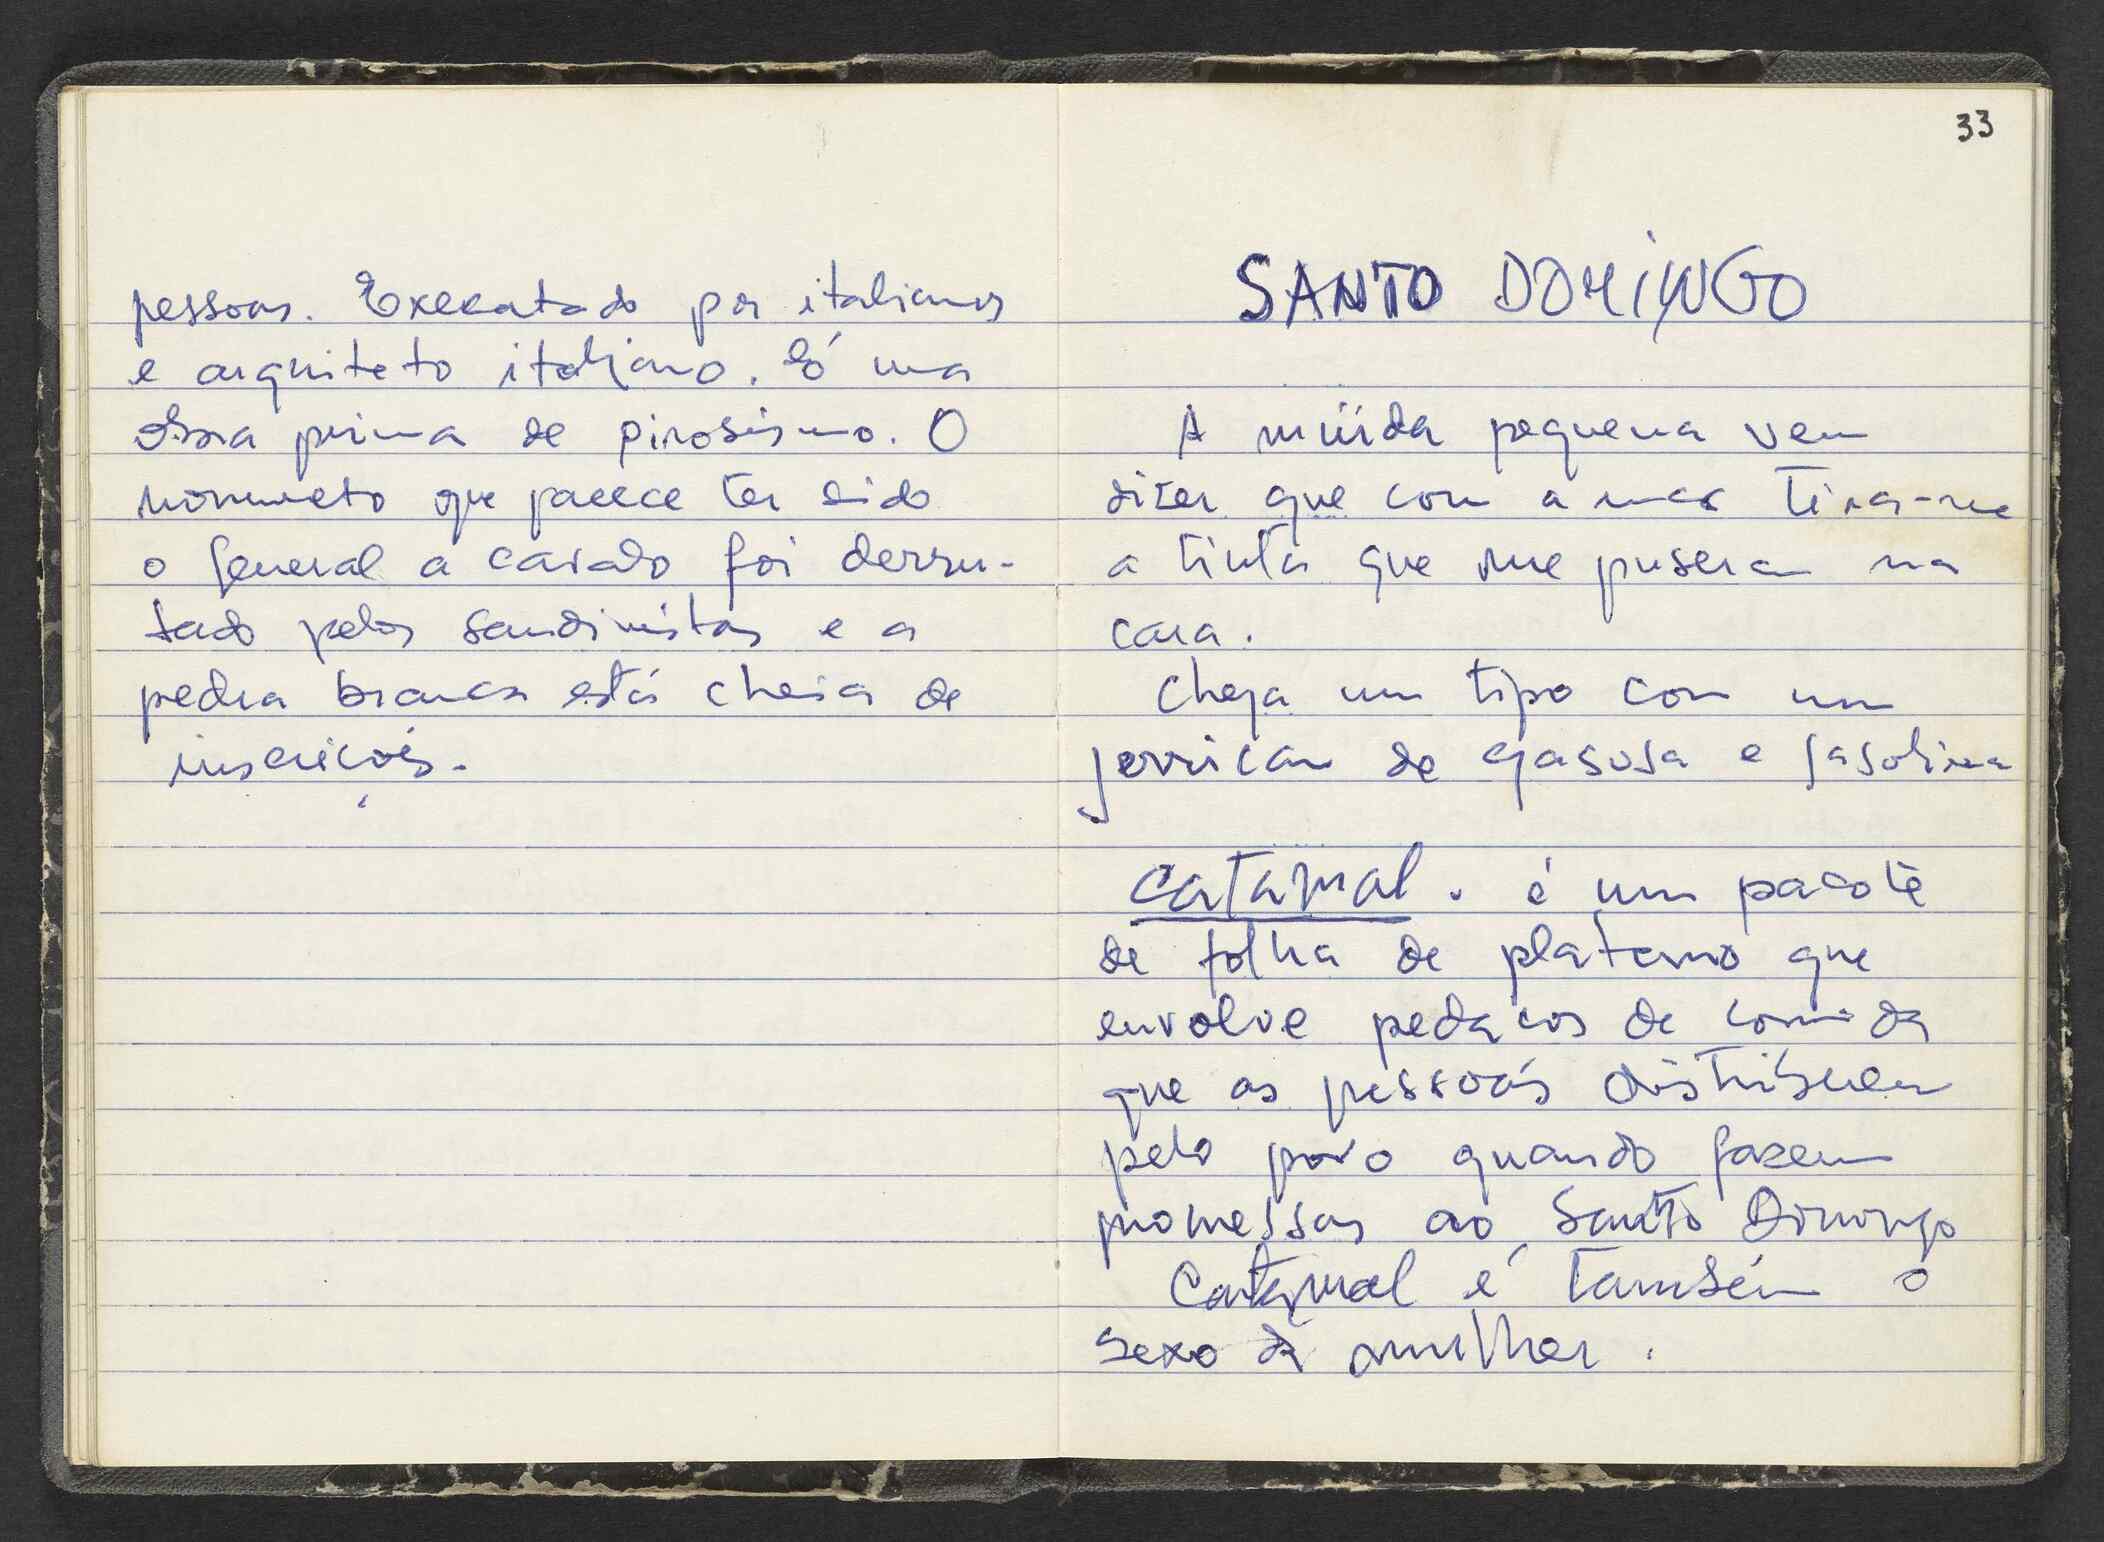 pessoas. Executado por italianos
e arquiteto italiano. É uma
obra prima de pirosismo. O
monumeto que parece ter sido
o general a cavalo foi derru-
bado pelos sandinistas e a
pedra branca está cheia de
inscrições.
33
SANTO DOMINGO
A miúda pequena vem
dizer que com a tira-me
a tinta que me puseram na
cara.
Chega um tipo com um
jerrican de gasosa e gasolina
Catamal. é um pacote
de folha de platano que
envolve pedaços de comida
que as pessoas distribuem
pelo povo quando fazem
promessas ao Santo Domingo
Catamal é também o
sexo da mulher.